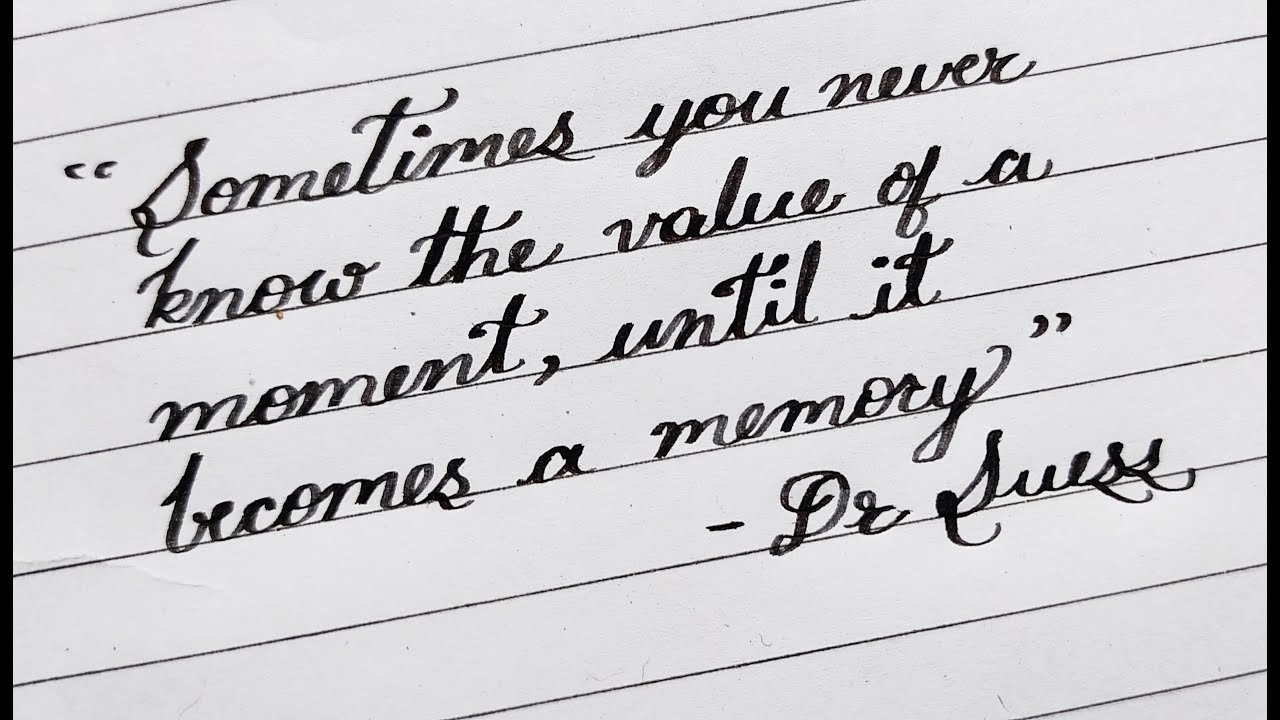 “Sometimes you never
know the value of a
moment, until it
becomes a memory”
- Dr Suess